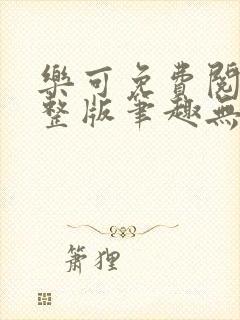 樂可免費閱
整版筆趣無
簫狸